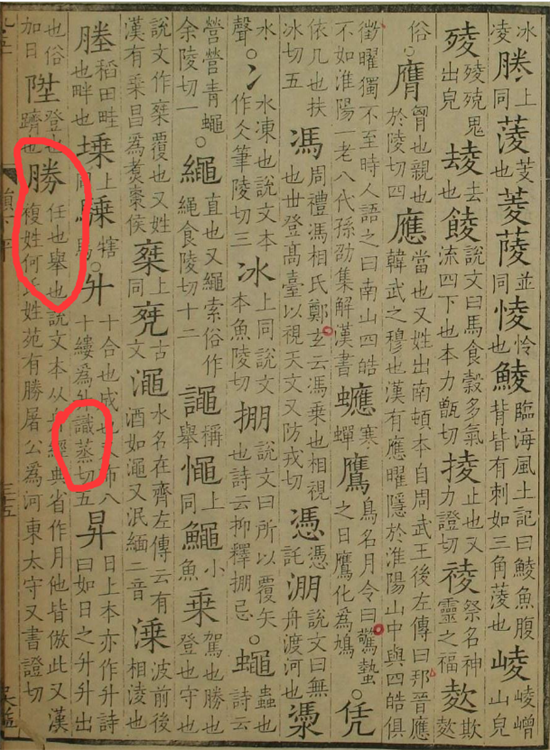 冰凌 上同 蔆 芰也 菱 䔖 並同上 㥄 怜也 鯪 臨海風土記曰鯪魚腹背皆有刺如三角蔆也 崚 崚嶒山皃
㱥 㱥殑鬼出皃 去也 說文曰馬食穀多氣流四下也本力甑切 掕 止也又力證切 祾 祭名神靈之福 欺
俗○膺 胷也親也於陵切四 應 當也又姓出南頓本自周武王後左傳曰邘晉應韓武之穆也漢有應曜隱於淮陽山中與四皓俱
徵曜獨不至時人語之曰南山四皓不如淮陽一老八代孫劭集解漢書 䗿 寒蟬 鷹 鳥名月令曰驚蟄之日鷹化為鳩○凭
依几也扶冰切五 馮 周禮馮相氏鄭玄云馮乗也相視也世登髙臺以視天文又防戎切 憑 憑託 淜 說文曰無舟渡河也 凴
水聲○冫 水凍也說文本作仌筆陵切三 冰 上同說文本魚陵切 掤 說文曰所以覆矢也詩云抑釋掤忌○蠅 蟲也詩云
營營青蠅余陵切一○繩 直也又繩索俗作䋲食陵切十二 譝 稱舉 憴 上同 䲅 小魚 乗 駕也勝也登也守也
說文作椉覆也又姓漢有乗昌為煑棗侯 椉 上同 古文 澠 水名在齊左傳云有酒如澠又泯緬二音 溗 波前後相淩也
塍 稻田畦也畔也 堘 上同 騬 犗馬○升 十合也成也又布八十縷為升識蒸切五 昇 日上本亦作升詩曰如日之升升出
也俗加日 陞 登也躋也 勝 任也舉也說文本从舟經典省作月他皆倣此又漢複姓何氏姓苑有勝屠公為河東太守又書證切